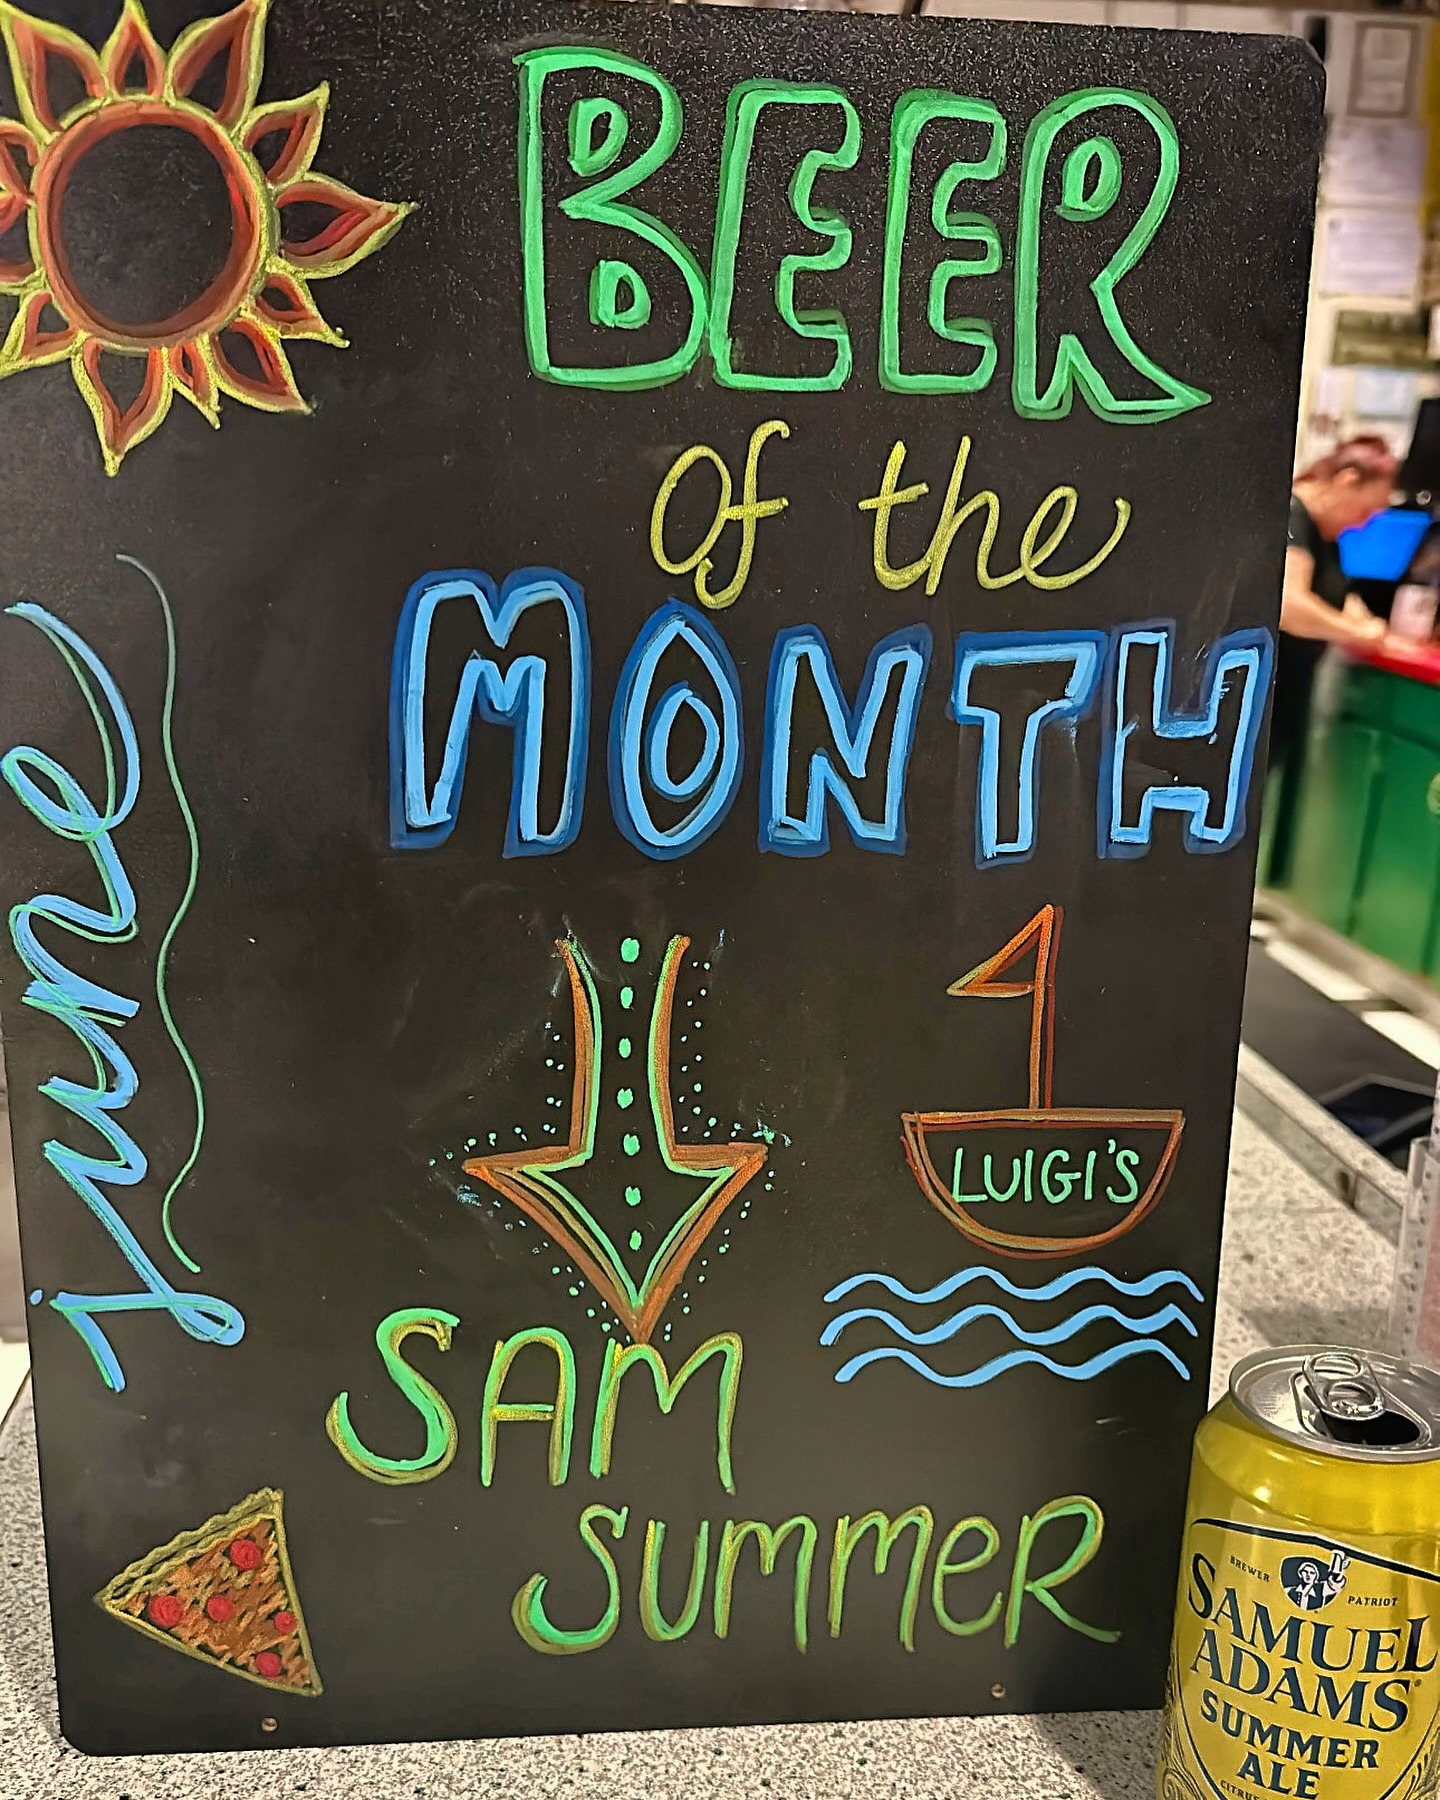 BEER
of the
MONTH
june
LUIGI'S
SAM
SUMMeR
BREWER
PATRIOT
SAMUEL
ADAMS
SUMMER
ALE